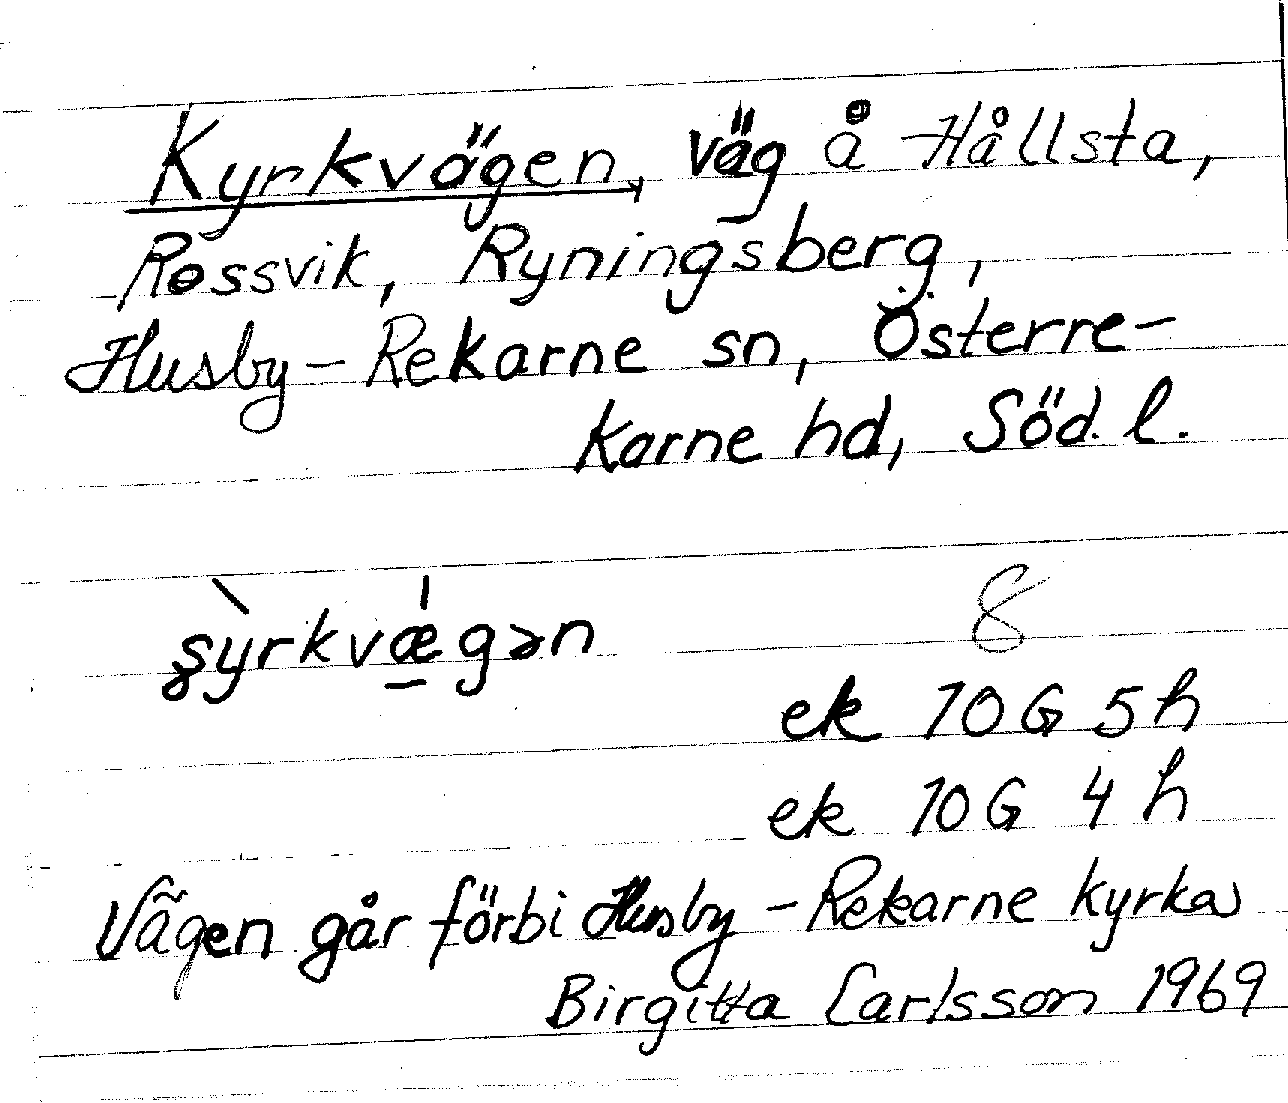 Kyrkvägen, väg å Hållsta,
Rossvik, Ryningsberg,
Husby-Rekarne sn, Österre-
karne hd, Söd. l.
ʂỳrkvǽ̱gən
8
ek 10G 5h
ek 10G 4h
Vägen går förbi Husby-Rekarne kyrka
Birgitta Carlsson 1969